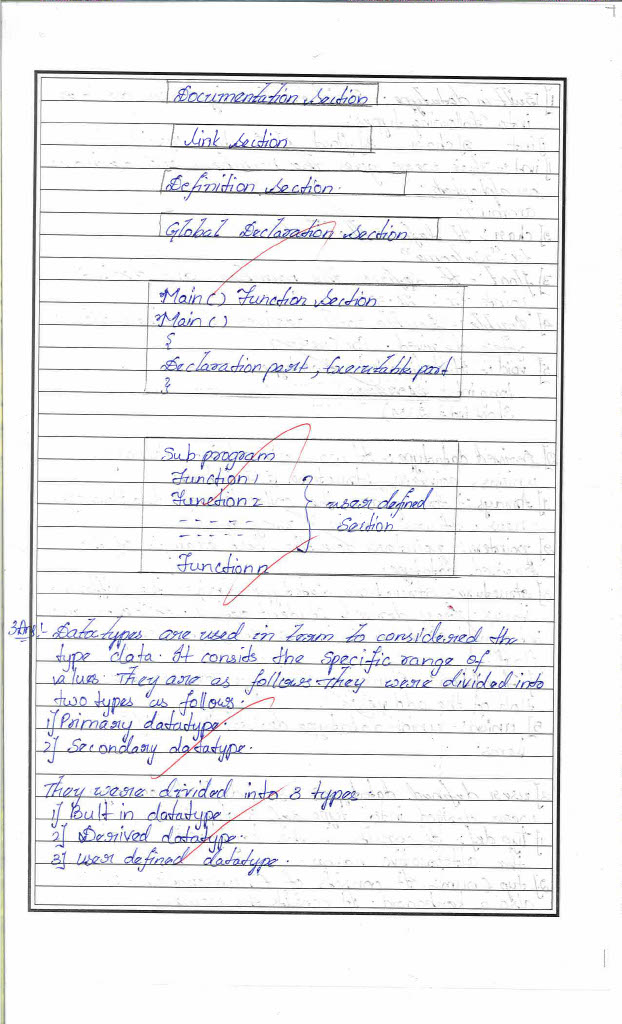 Documentation Section
Link Section
Definition Section.
Global Declaration Section
Main() Function Section
Main()
{
Declaration part, Executable part
}
Sub program
Function 1
Function 2
- - - - -
- - - - -
Function n
} user defined
Section
3Ans:- Datatypes are used in term to considered the
type data. It consists the specific range of
values. They are as follows They were divided into
two types as follows.
1] Primary datatype.
2] Secondary datatype.
They were divided into 3 types
1] Bult in datatype.
2] Derived datatype.
3] user defined datatype.